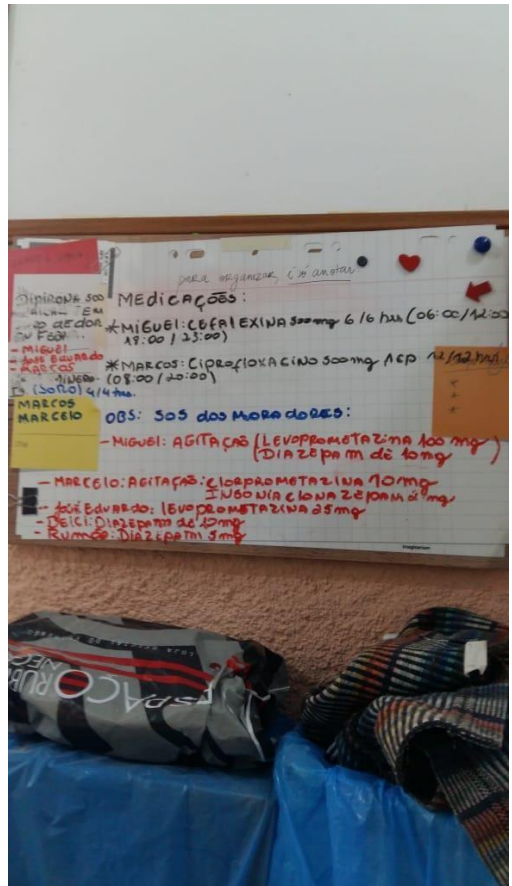 para organizar, é só anotar
MEDICAÇÕES:
DIPIRONA 500
EM
DE DOR
- MIGUEL
- JOSÉ EDUARDO
- MARCOS
(SORO) 4/4 hrs.
MARCOS
MARCELO
*MIGUEL: CEFALEXINA 500mg 6/6 hrs (06:00/12:00
18:00 / 23:00)
*MARCOS: CIPROFLOXACINO 500mg 1CP 12/12 hrs.
(08:00/20:00)
OBS: SOS DOS MORADORES:
- MIGUEL: AGITAÇÃO (LEVOPROMETAZINA 100 mg
(DIAZEPAM DE 10mg )
- MARCELO: AGITAÇÃO: CLORPROMETAZINA 10mg
INSONIA CLONAZEPAM 2 mg
- JOSÉ EDUARDO: LEVOPROMETAZINA 25mg
- DEICI: DIAZEPAM DE 10mg
- DIAZEPAM 5mg
ESPAÇO RUB
NEG